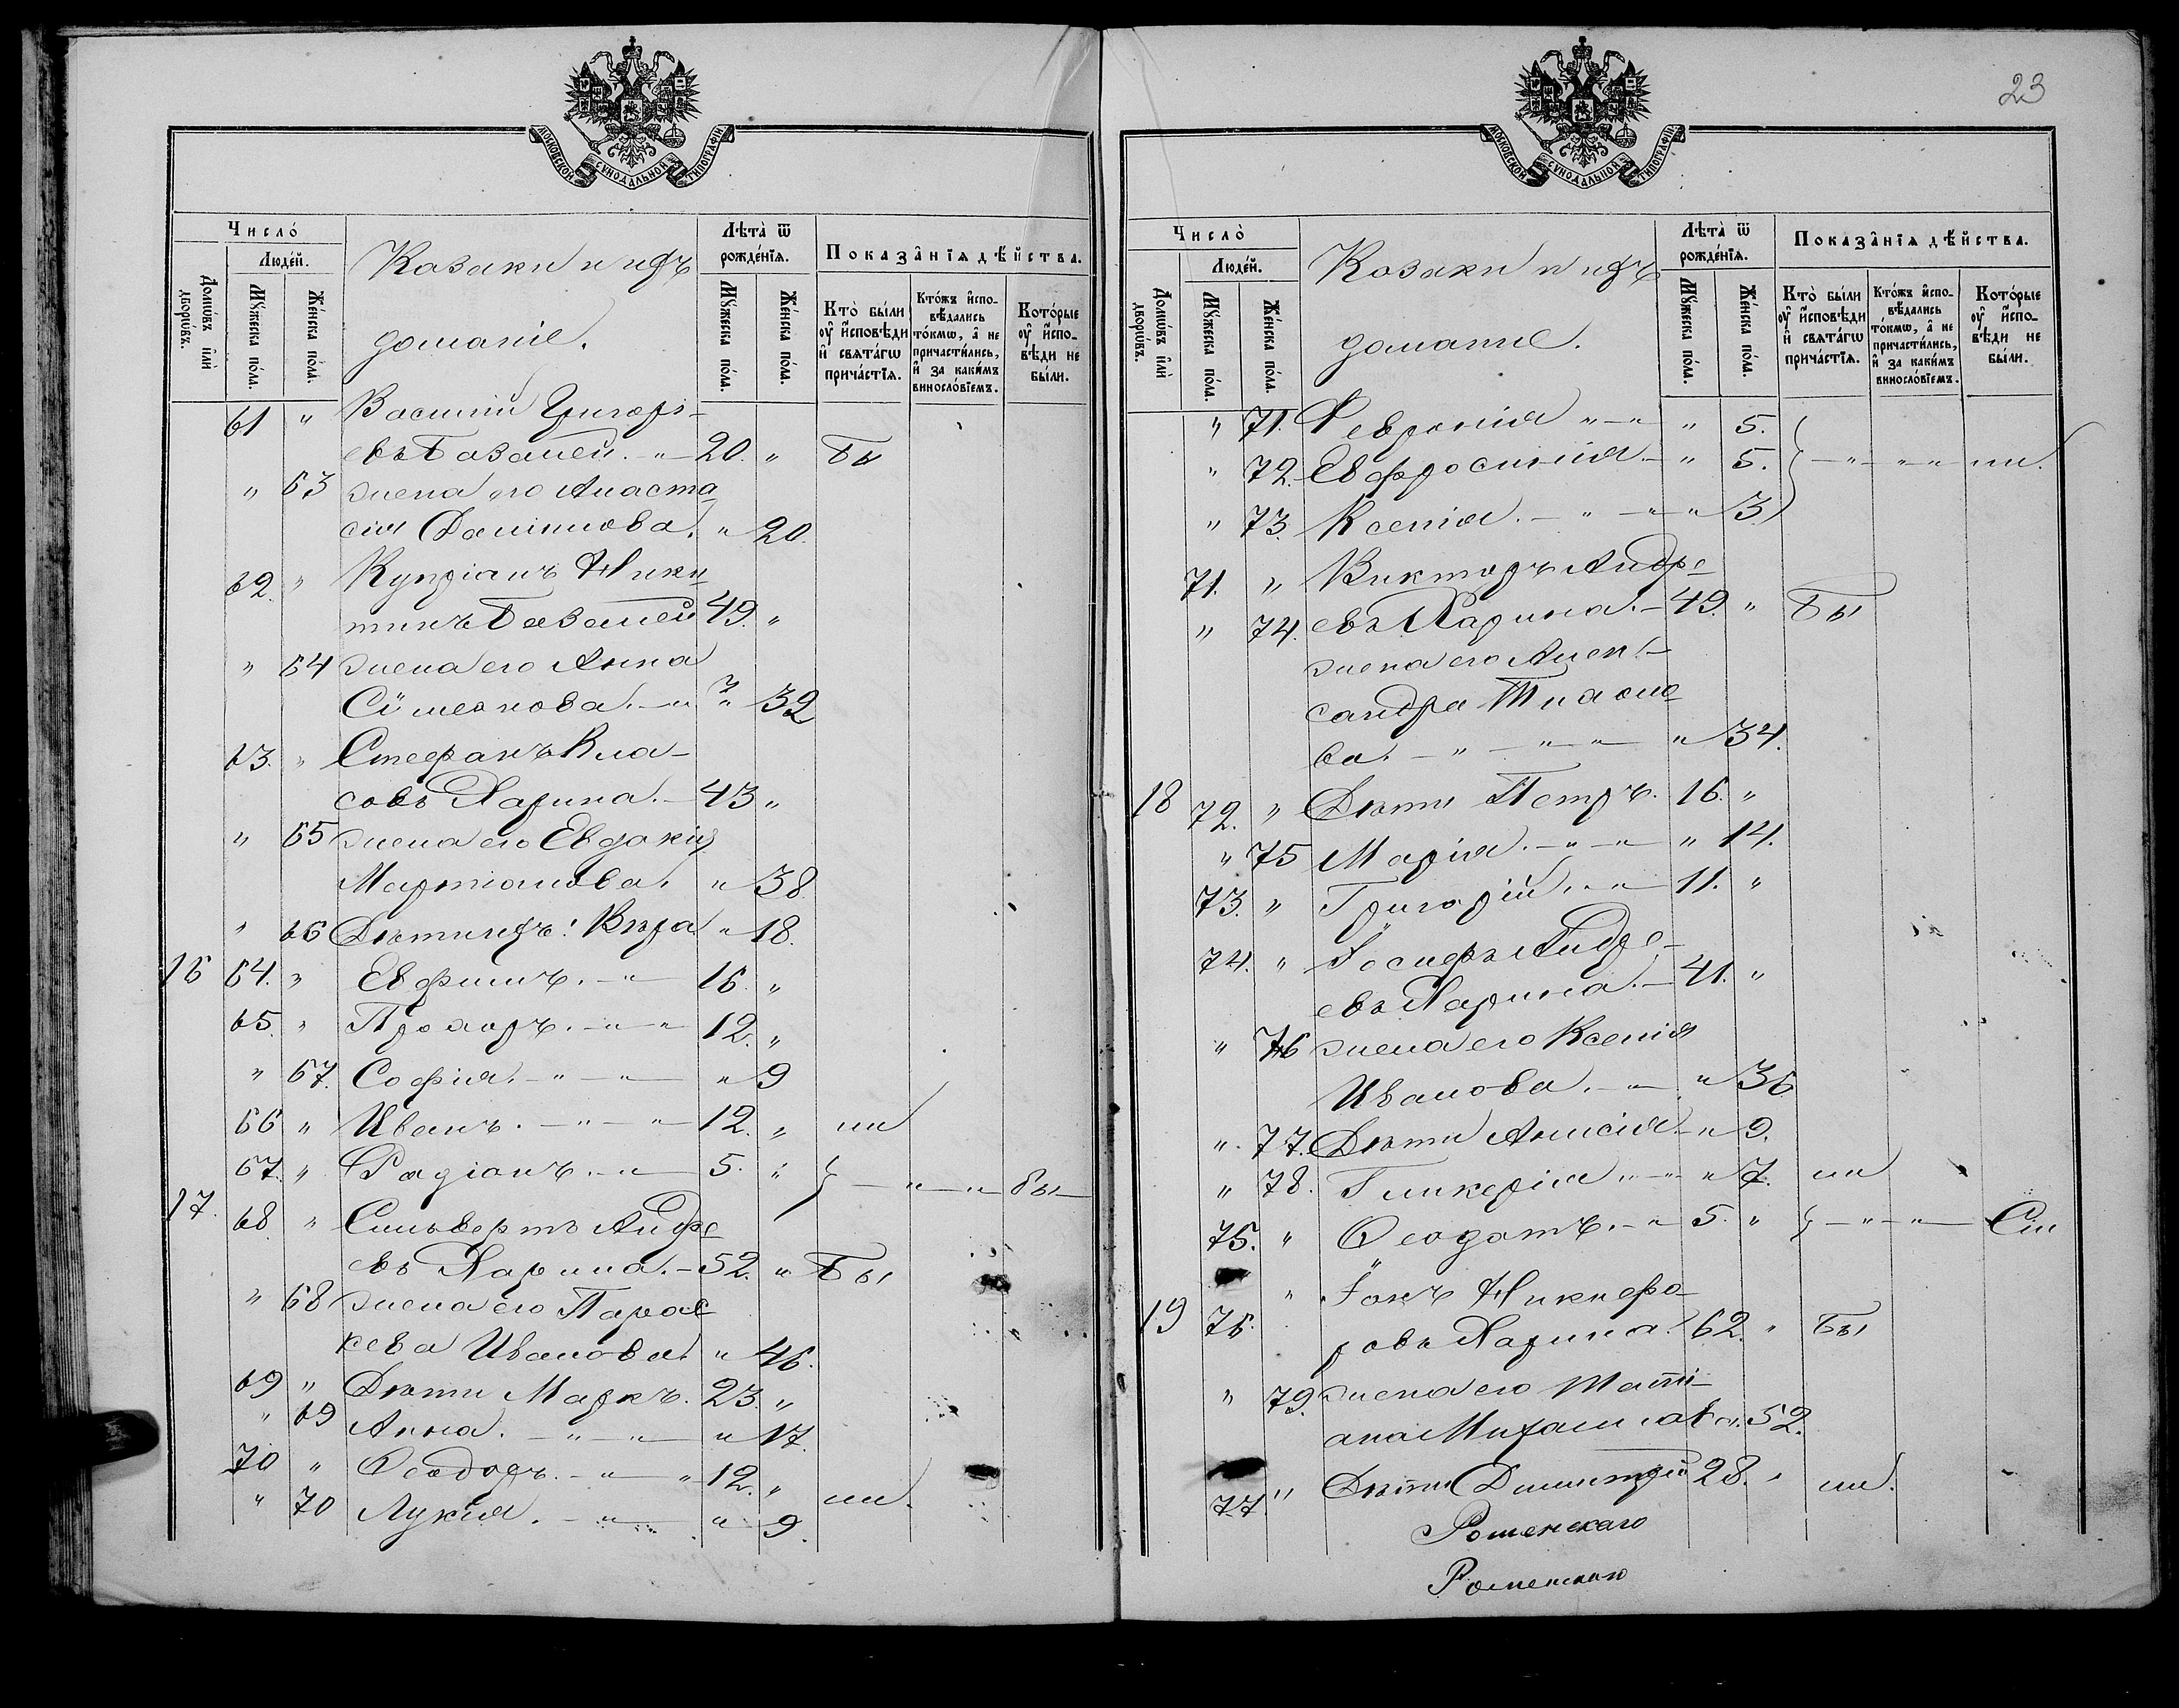 23
МОСКОВСКОЙ СѴНОДАЛЬНОЙ ТИПОГРАФІИ
Число̀
Людей.
Домѡвъ и҆лѝ дворѡвъ.
Мꙋ́жеска по́ла.
Же́нска по́ла.
Козаки и ихъ
домашніе.
Лѣта̀ ѿ рожде́нїѧ.
Мꙋ́жеска по́ла.
Же́нска по́ла.
Показа̑нїѧ дѣ́йства.
Кто̀ бы́ли оу҆ и҆сповѣ́ди и҆ свѧта́гѡ прича́стїѧ.
Кто́жъ и҆сповѣ́дались то́кмѡ, а҆ не причасти́лись, и҆ за каки́мъ винослові́емъ.
Кото́рые оу҆ и҆сповѣ́ди не бы́ли.
61 " Василій Григорі-
евъ Базалей. - " - 20. " Бы
" 63 жена его Анаста
сія Даніилова. " 20.
62. " Купріанъ Ники
тинъ Базалей 49. "
" 64 жена его Анна
Сѵмеонова. - " 32
63. " Стефанъ Вла-
совъ Харина. - 43 "
" 65 жена его Евдокія
Мартіанова. " 38.
" 66 Дѣти ихъ: Вѣра " 18.
16 64. " Евфимъ. - " 16. "
65. " Прохоръ. - " - " 12. "
" 67. Софія. - " - " - " 9
66 " Иванъ. - " - " 12. " ли
67. " Радіонъ. - " - 5. " } - " - " бы -
17. 68. " Сильверстъ Андре
евъ Харина. - 52. " Бы
" 68 жена его Парас
кева Иванова. " 46.
69 " Дѣти Маркъ. 23. "
" 69 Анна. - " - " - " 17.
70 " Ѳеодоръ. - " - " 12. "
" 70 Лукія. - " - " 9. ли.
МОСКОВСКОЙ СѴНОДАЛЬНОЙ ТИПОГРАФІИ
Число̀
Людей.
Домѡвъ и҆лѝ дворѡвъ.
Мꙋ́жеска по́ла.
Же́нска по́ла.
Козаки и ихъ
домашніе.
Лѣта̀ ѿ рожде́нїѧ.
Мꙋ́жеска по́ла.
Же́нска по́ла.
Показа̑нїѧ дѣ́йства.
Кто̀ бы́ли оу҆ и҆сповѣ́ди и҆ свѧта́гѡ прича́стїѧ.
Кто́жъ и҆сповѣ́дались то́кмѡ, а҆ не причасти́лись, и҆ за каки́мъ винослові́емъ.
Кото́рые оу҆ и҆сповѣ́ди не бы́ли.
" 71. Февронія " - " " 5.
" 72. Евфросинія. - " 5. } - " - " - ли.
" 73. Ксенія. - " - " - " 3.
71. " Викторъ Андре
" 74. евъ Харина. - 49. " Бы
жена его Алек-
сандра Тихоно
ва. - " - " - " 34.
18 72. " Дѣти Петръ. 16. "
" 75 Марія. - " - " 14.
73. " Григорій. - " - 11. "
74. " Іосифъ Андре-
евъ Харина. - 41. "
" 76 жена его Ксенія
Иванова. - " - " 36
" 77. Дѣти Анисія. - " 9.
" 78. Гликерія " - " 7. ли
75. " Ѳеодотъ. - " 5. " } - " - "
" Іонъ Никифо-
19 76. ровъ Харина. 62. " Бы
" 79. жена его Таті-
ана Михаилова. 52.
77. " Дѣти Димитрій 28. " ли.
Роменскаго